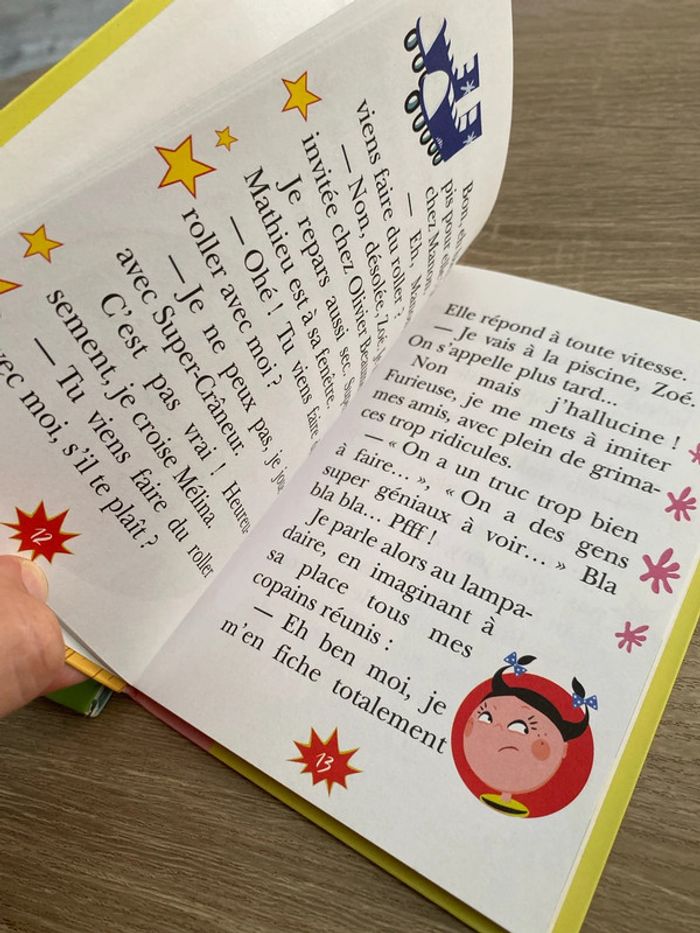 Bon, eh
pis pour elle
chez Manon.
— Eh,
viens faire du roller ?
— Non, désolée, Zoé,
invitée chez Olivier
Je repars aussi sec,
Mathieu est à sa fenêtre.
— Ohé ! Tu viens faire
roller avec moi ?
— Je ne peux pas, je
avec Super-Crâneur.
C'est pas vrai !
sement, je croise Mélina.
— Tu viens faire du roller
avec moi, s'il te plaît ?
12
Elle répond à toute vitesse.
— Je vais à la piscine, Zoé.
On s'appelle plus tard...
Non mais j'hallucine !
Furieuse, je me mets à imiter
mes amis, avec plein de grima-
ces trop ridicules.
— « On a un truc trop bien
à faire... », « On a des gens
super géniaux à voir... » Bla
bla bla... Pfff !
Je parle alors au lampa-
daire, en imaginant à
sa place tous mes
copains réunis :
— Eh ben moi, je
m'en fiche totalement
13